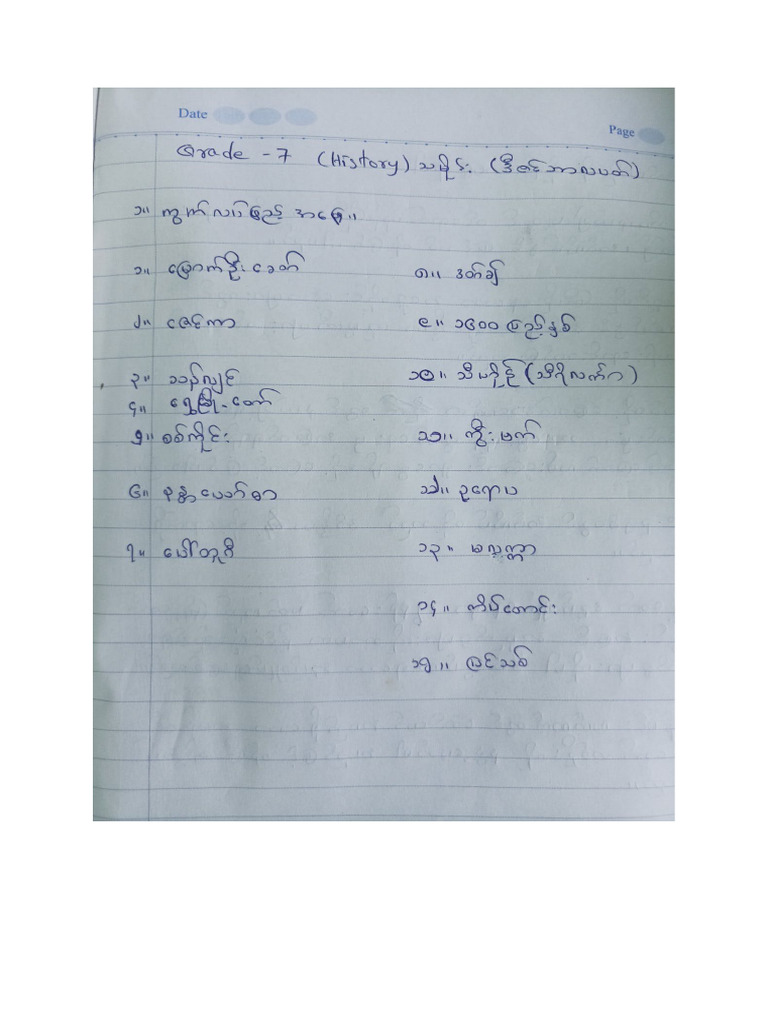 Date
Page
Grade - 7 (History) သမိုင်း (ဒီဇင်ဘာလပတ်)
၁။ ကွက်လပ်ဖြည့် အဖြေ။
၁။ မြောက်ဦးခေတ်
၂။ ဇင်ကာ
၃။ သန်လျင်
၄။ ရွှေမြို့တော်
၅။ စစ်ကိုင်း
၆။ နန္ဒာယောဓာ
၇။ ပေါ်တူဂီ
၈။ ဒတ်ချ်
၉။ ၁၆၀၀ ပြည့်နှစ်
၁၀။ သီဟိုဠ် (သီရိလင်္ကာ)
၁၁။ ကွီးမက်
၁၂။ ဥရောပ
၁၃။ မလက္ကာ
၁၄။ ကိုယ်တောင်း
၁၅။ ပြင်သစ်